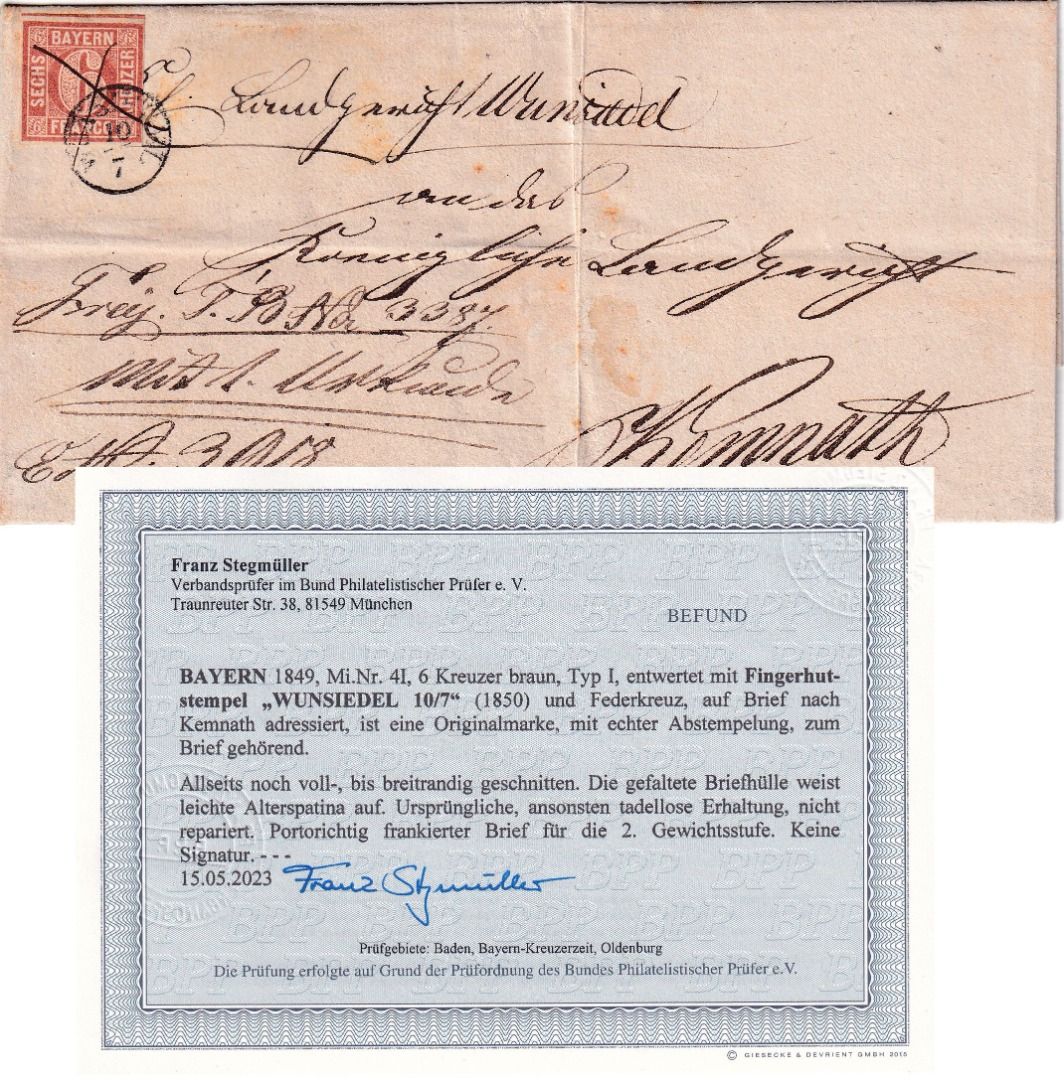 BAYERN
SECHS KREUZER
FRANCO
6
10
7
Landgericht Wunsiedel
an das
Königliche Landgericht
Frey. T. B No 3387.
mit 1. Urkunde
Kemnath
Franz Stegmüller
Verbandsprüfer im Bund Philatelistischer Prüfer e. V.
Traunreuter Str. 38, 81549 München
BEFUND
BAYERN 1849, Mi.Nr. 4I, 6 Kreuzer braun, Typ I, entwertet mit Fingerhut-
stempel „WUNSIEDEL 10/7“ (1850) und Federkreuz, auf Brief nach
Kemnath adressiert, ist eine Originalmarke, mit echter Abstempelung, zum
Brief gehörend.
Allseits noch voll-, bis breitrandig geschnitten. Die gefaltete Briefhülle weist
leichte Alterspatina auf. Ursprüngliche, ansonsten tadellose Erhaltung, nicht
repariert. Portorichtig frankierter Brief für die 2. Gewichtsstufe. Keine
Signatur. - - -
15.05.2023 Franz Stegmüller
Prüfgebiete: Baden, Bayern-Kreuzerzeit, Oldenburg
Die Prüfung erfolgte auf Grund der Prüfordnung des Bundes Philatelistischer Prüfer e.V.
© GIESECKE & DEVRIENT GMBH 2015